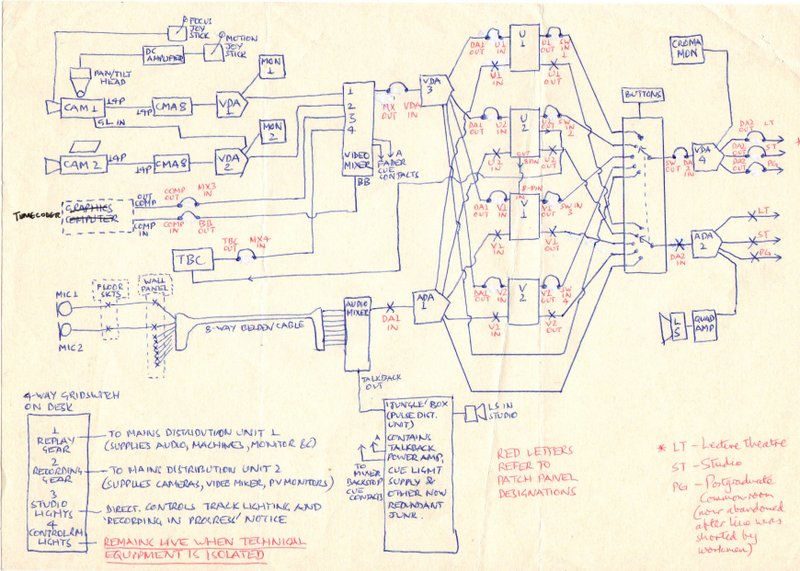 FOCUS
JOY
STICK
MOTION
JOY
STICK
DC AMPLIFIER
PAN/TILT
HEAD
MON
1
CAM 1
14P
14P
CMA8
VDA
1
5L IN
MON
2
CAM 2
14P
14P
CMA8
VDA
2
GRAPHICS
COMPUTER
TIMECODER
OUT
COMP
COMP
IN
COMP
OUT
MX3
IN
COMP
IN
BB
OUT
TBC
TBC
OUT
MX4
IN
1
2
3
4
VIDEO
MIXER
BB
A
FADER
CUE
CONTACTS
MX
OUT
VDA
IN
VDA
3
DA1
OUT
U1
IN
U1
IN
U
1
U1
OUT
SW
IN 1
U1
OUT
DA1
OUT
U2
IN
U2
IN
U
2
U2
OUT
SW
IN 2
U2
OUT
EXT
8-PIN
8-PIN
DA1
OUT
V1
IN
V1
IN
V
1
V1
OUT
SW
IN 3
V1
OUT
DA1
OUT
V2
IN
V2
IN
V
2
V2
OUT
SW
IN 4
V2
OUT
BUTTONS
CROMA
MON
SW
OUT
DA2
IN
VDA
4
DA2
OUT
LT
DA2
OUT
ST
DA2
OUT
PG
*
DA2
IN
ADA
2
LT
ST
PG
LS
QUAD
AMP
MIC1
MIC2
FLOOR
SKTS
WALL
PANEL
8-WAY BELDEN CABLE
AUDIO
MIXER
DA1
IN
ADA
1
TALKBACK
OUT
'JUNGLE' BOX
(PULSE DIST.
UNIT)
CONTAINS
TALKBACK
POWER AMP,
CUE LIGHT
SUPPLY &
OTHER NOW
REDUNDANT
JUNK.
LS IN
STUDIO
A
TO MIXER
BACKSTOP
CUE CONTACTS
RED LETTERS
REFER TO
PATCH PANEL
DESIGNATIONS
* LT - Lecture theatre
ST - Studio
PG - Postgraduate
Common room
(now abandoned
after line was
shorted by
workmen)
4-WAY GRIDSWITCH
ON DESK
1
REPLAY
GEAR
TO MAINS DISTRIBUTION UNIT 1
(SUPPLIES AUDIO, MACHINES, MONITOR &C)
2
RECORDING
GEAR
TO MAINS DISTRIBUTION UNIT 2
(SUPPLIES CAMERAS, VIDEO MIXER, PV MONITORS)
3
STUDIO
LIGHTS
DIRECT. CONTROLS TRACK LIGHTING AND
'RECORDING IN PROGRESS' NOTICE
4
CONTROL RM
LIGHTS
REMAINS LIVE WHEN TECHNICAL
EQUIPMENT IS ISOLATED